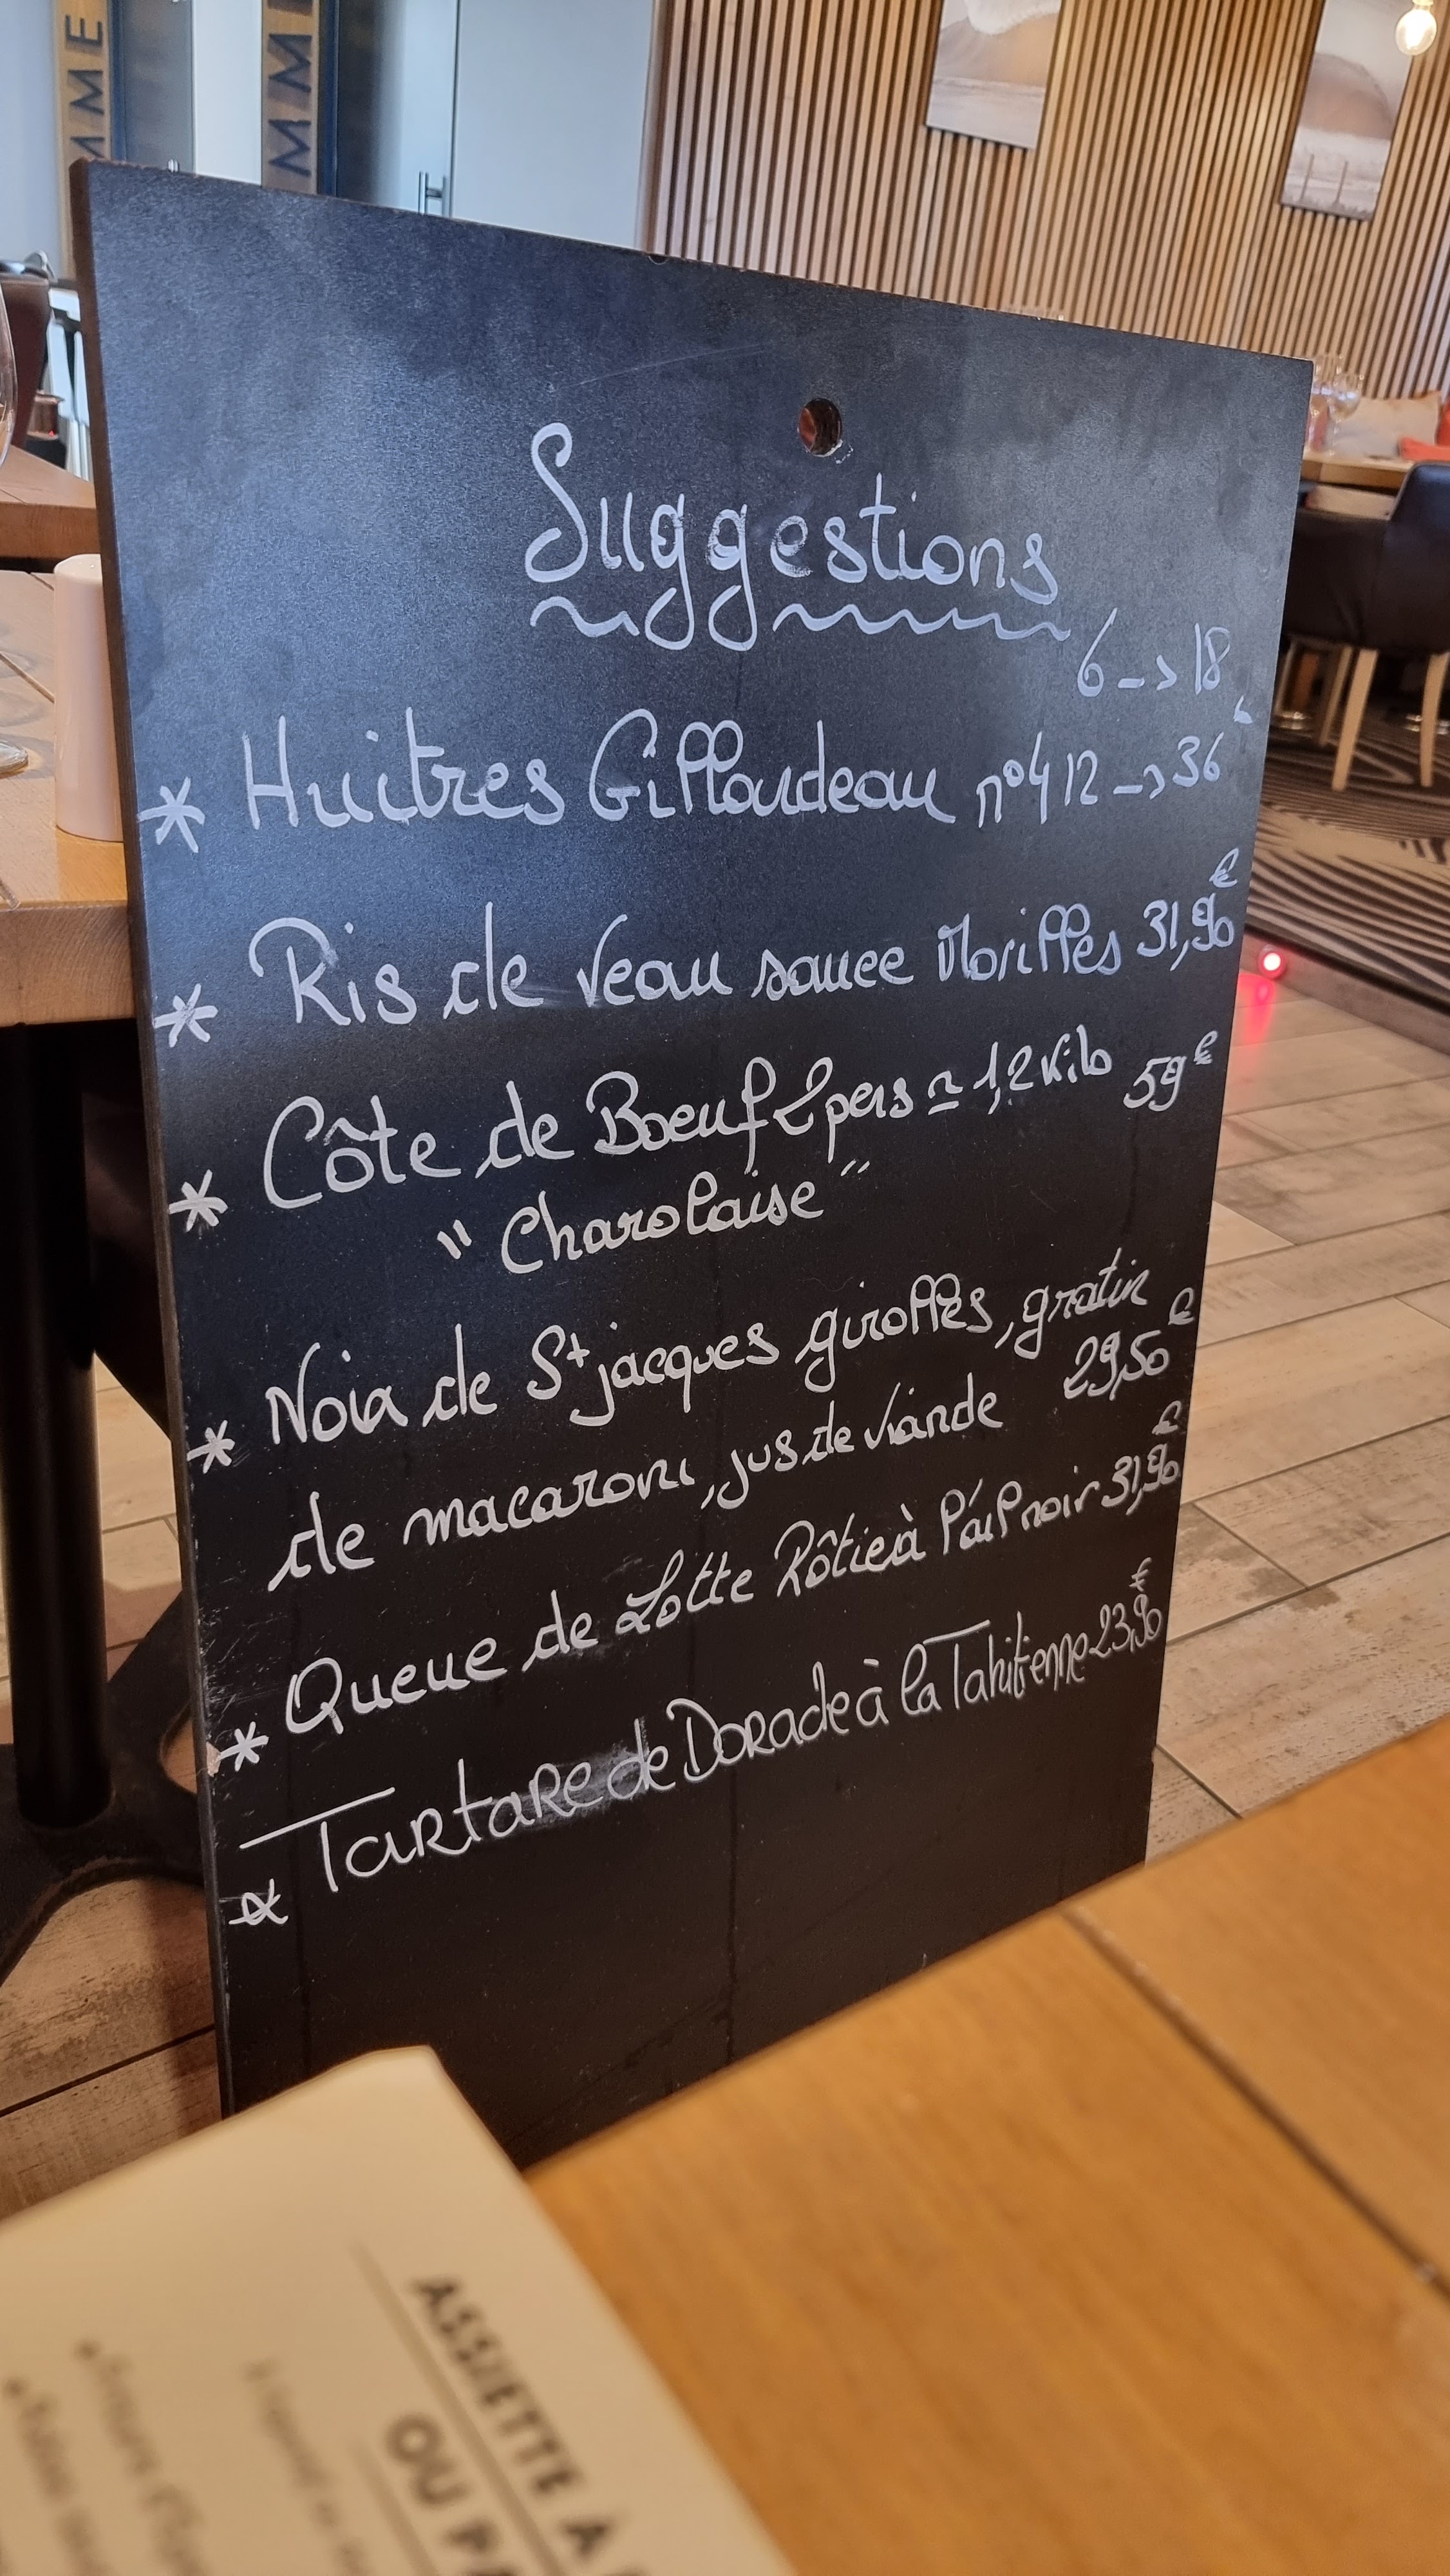 MME
MME
Suggestions
6 -> 18
* Huitres Gillardeau n°4 12 -> 36 €
* Ris de Veau sauce Morilles 31,90 €
* Côte de Boeuf 2 pers ≃ 1,2 Kilo 59 €
" Charolaise "
* Noix de St jacques girolles, gratin
de macaroni, jus de viande 29,50 €
* Queue de Lotte Rôtie à l'ail noir 31,90 €
* Tartare de Dorade à la Tahitienne 23,90 €
ASSIETTE À
OU PA